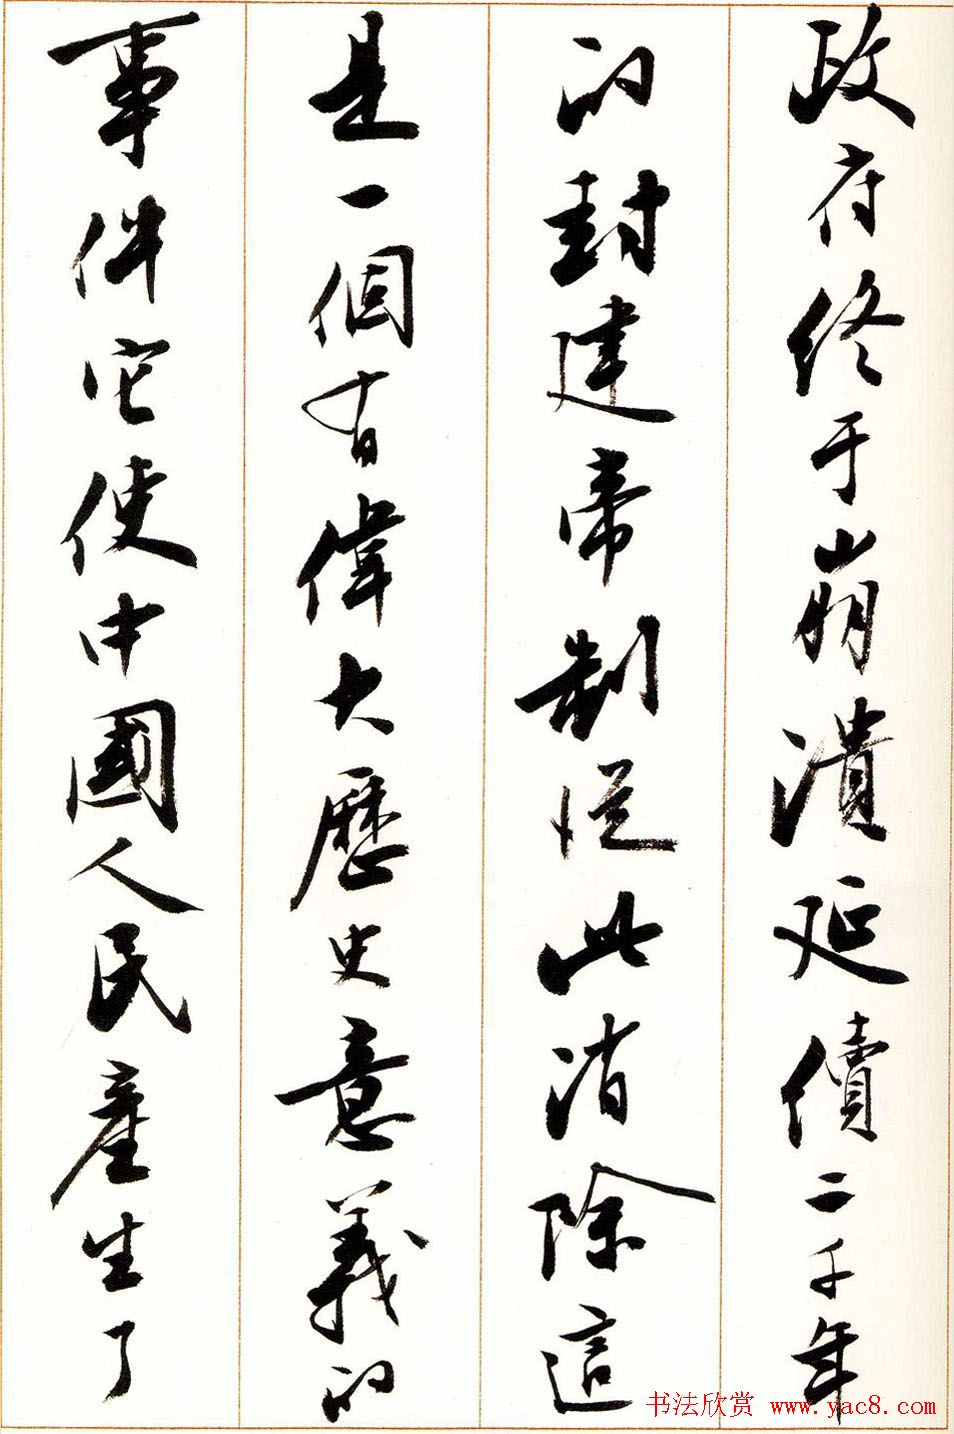 政府终于崩潰延價二千年
的封建帝制從此消除這
是一個有偉大歷史意義的
事件它使中國人民產生了
书法欣赏 www.yac8.com